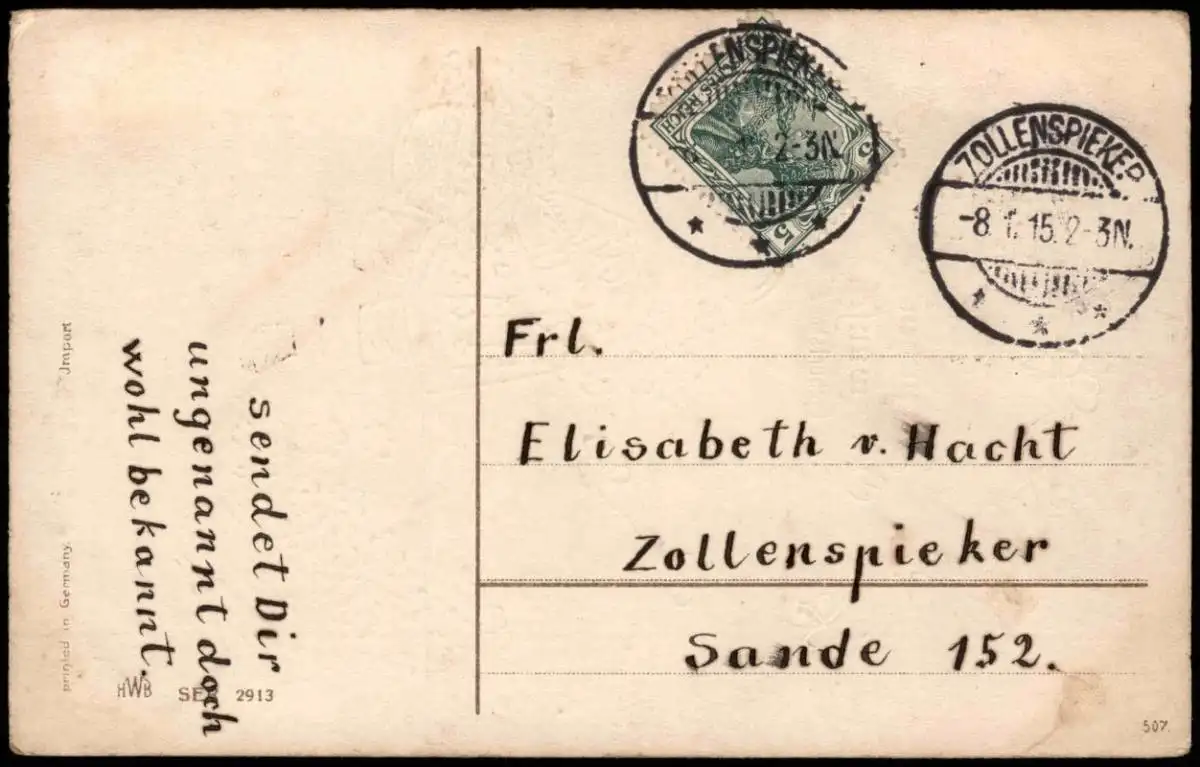 ZOLLENSPIEKER
DEUTSCHES REICH
5
5
2-3N.
ZOLLENSPIEKER
-8.1.15.2-3N.
Frl.
Elisabeth v. Hacht
Zollenspieker
Sande 152.
sendet Dir
ungenannt doch
wohl bekannt.
printed in Germany.
Import
HWB SER 2913
507